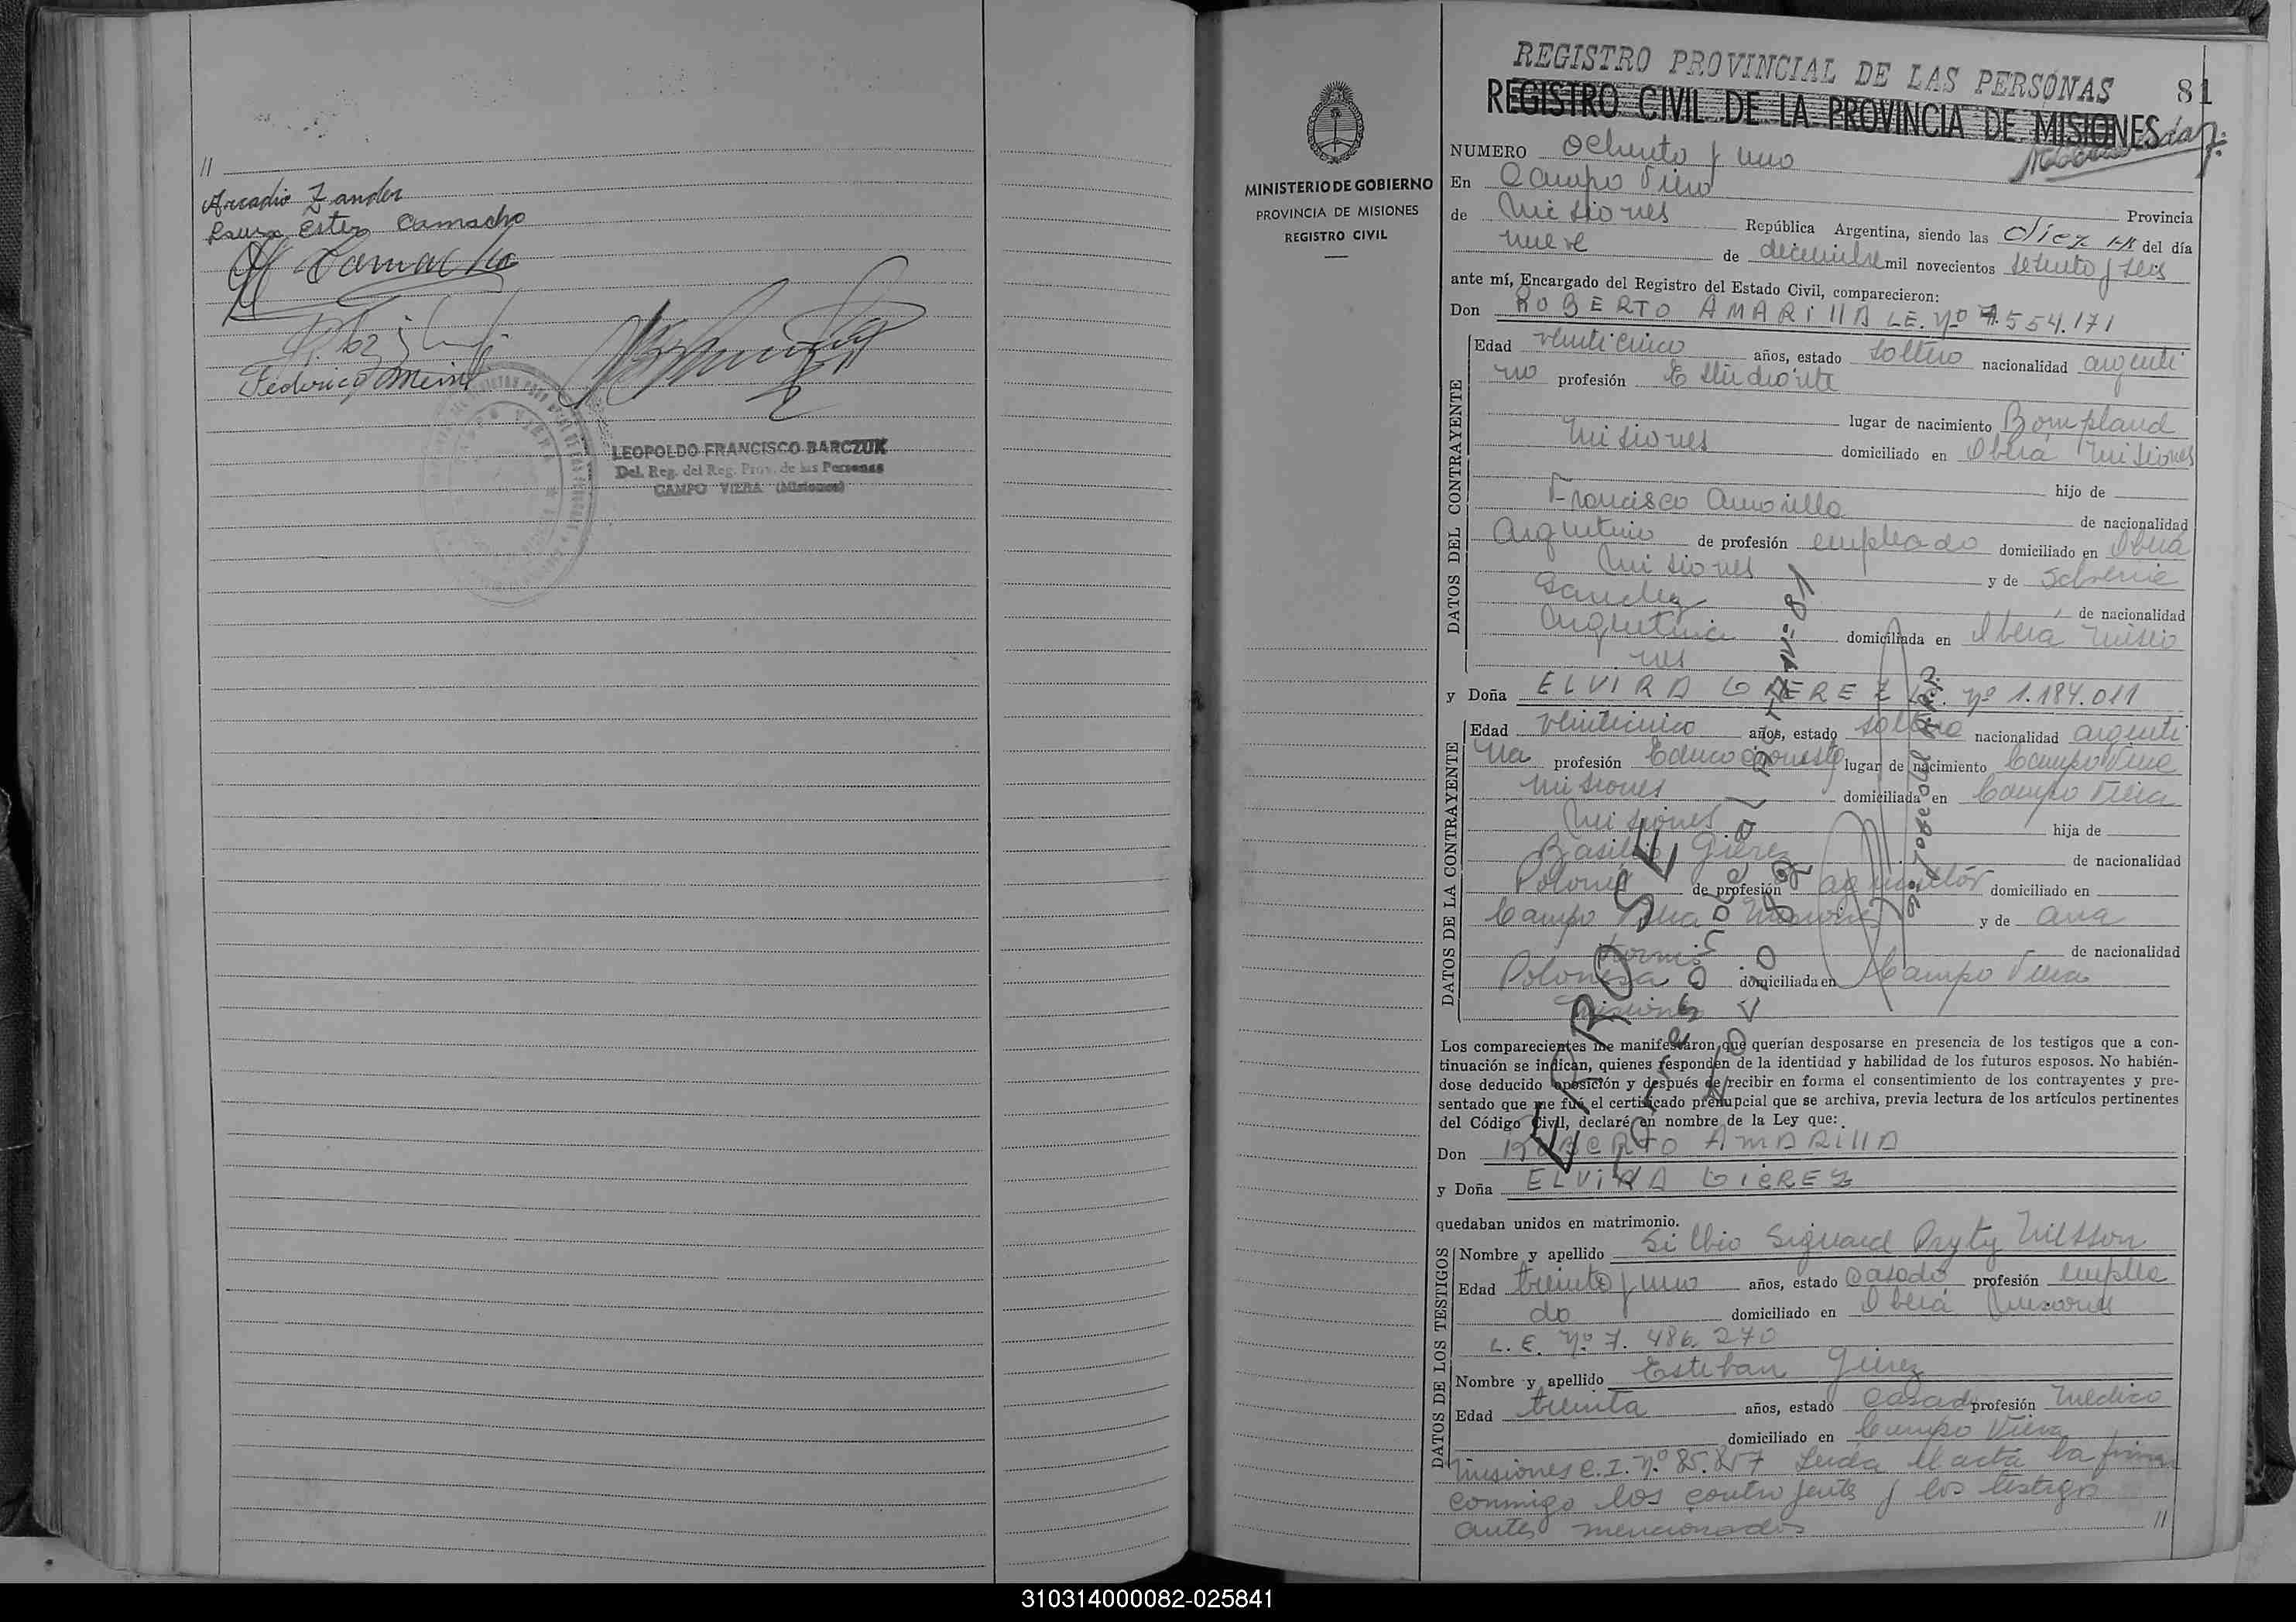 //
Arcadio Zander
Laura Ester Camacho
Camacho
Federico
LEOPOLDO FRANCISCO BARCZUK
Del. Reg. del Reg. Prov. de las Personas
CAMPO VIERA (Misiones)
MINISTERIO DE GOBIERNO
PROVINCIA DE MISIONES
REGISTRO CIVIL
REGISTRO PROVINCIAL DE LAS PERSONAS
81
REGISTRO CIVIL DE LA PROVINCIA DE MISIONES
NUMERO Ochenta y uno
En Campo Viera
Provincia
de Misiones República Argentina, siendo las diez hs del día
nueve de diciembre mil novecientos setenta y seis
ante mí, Encargado del Registro del Estado Civil, comparecieron:
Don ROBERTO AMARILLA LE. Nº 7.554.171
DATOS DEL CONTRAYENTE
Edad veinticinco años, estado soltero nacionalidad argenti
no profesión Estudiante
lugar de nacimiento Bompland
Misiones domiciliado en Oberá Misiones
hijo de
Francisco Amarilla de nacionalidad
Argentino de profesión empleado domiciliado en Oberá
Misiones y de
Sanchez de nacionalidad
Argentina domiciliada en Oberá Misio
nes
y Doña ELVIRA GIEREZ Nº 1.184.011
DATOS DE LA CONTRAYENTE
Edad veinticinco años, estado soltera nacionalidad argenti
na profesión lugar de nacimiento Campo Viera
Misiones domiciliada en Campo Viera
Misiones hija de
Basilio Gierez de nacionalidad
Polones de profesión agricultor domiciliado en
Campo Viera Misiones y de Ana
de nacionalidad
Polonesa domiciliada en Campo Viera
Misiones
Los comparecientes me manifestaron que querían desposarse en presencia de los testigos que a con-
tinuación se indican, quienes responden de la identidad y habilidad de los futuros esposos. No habién-
dose deducido oposición y después de recibir en forma el consentimiento de los contrayentes y pre-
sentado que me fué el certificado prenupcial que se archiva, previa lectura de los artículos pertinentes
del Código Civil, declaré en nombre de la Ley que:
Don ROBERTO AMARILLA
y Doña ELVIRA GIEREZ
quedaban unidos en matrimonio.
DATOS DE LOS TESTIGOS
Nombre y apellido Silbio Siguard Pryty Nilsson
Edad treinta y uno años, estado Casado profesión emplea
do domiciliado en Oberá Misiones
L. E. Nº 7. 486. 270
Nombre y apellido Esteban Gierez
Edad treinta años, estado casado profesión medico
domiciliado en Campo Viera
Misiones C.I. Nº 85.857 Leida el acta la firma
conmigo los contrayentes y los testigos
antes mencionados //
310314000082-025841